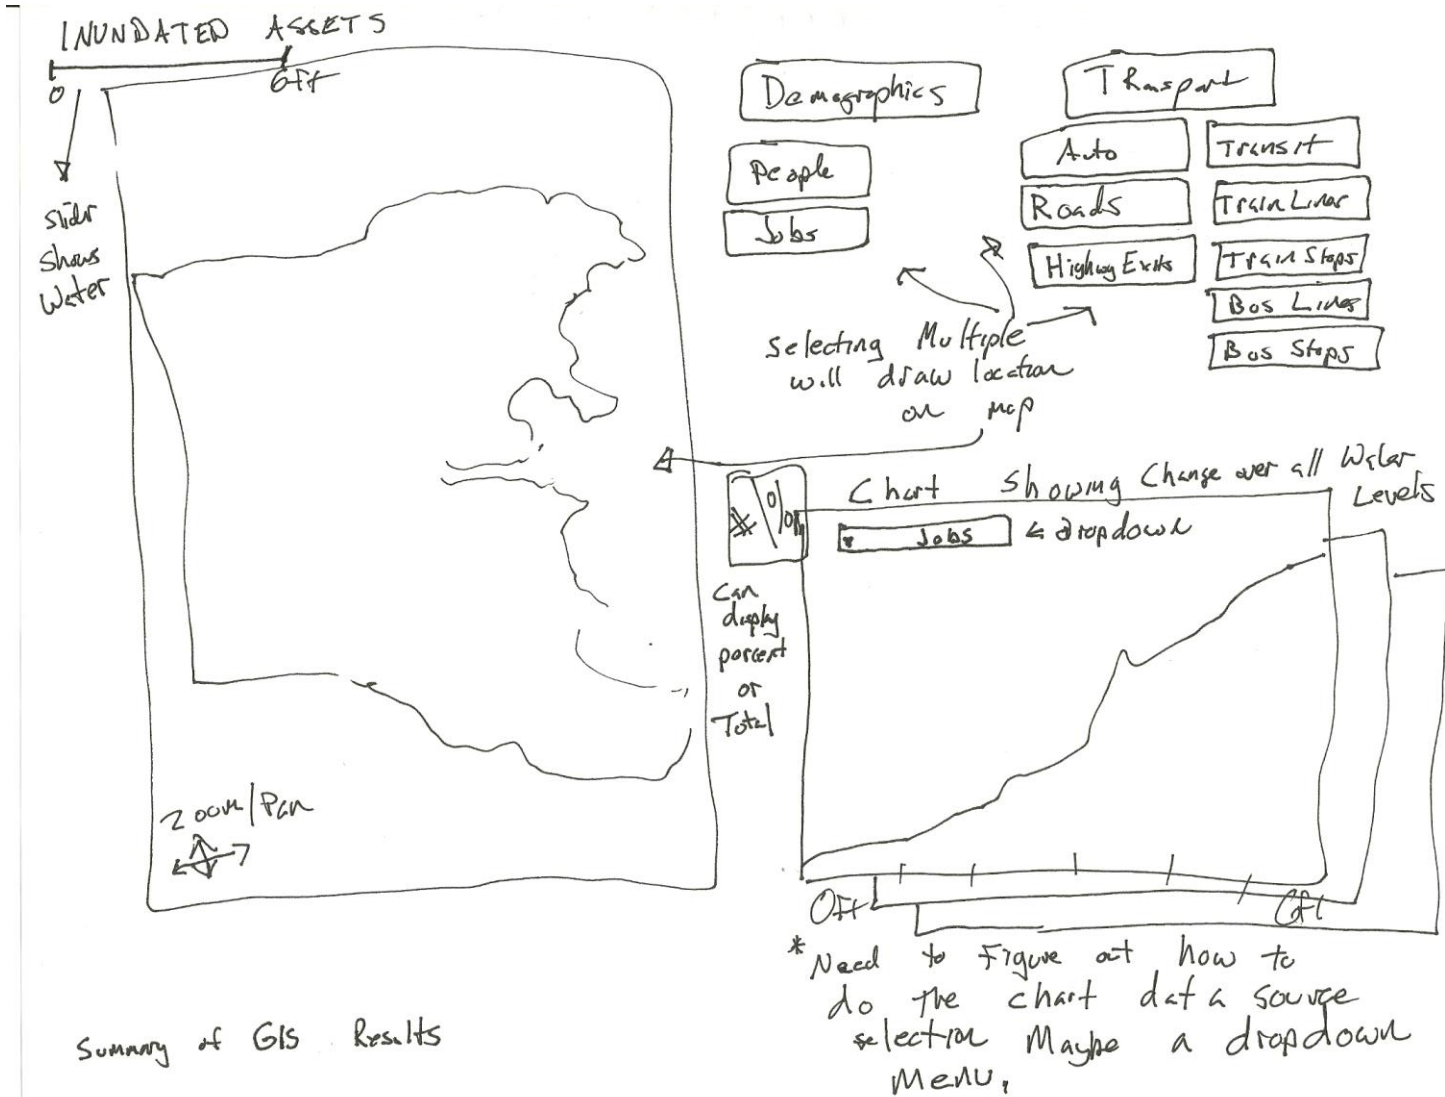 INUNDATED ASSETS
0
6ft
Slider
Shows
Water
Demographics
People
Jobs
Transport
Auto
Roads
Highway Exits
Transit
Train Lines
Train Stops
Bus Lines
Bus Stops
Selecting Multiple
will draw location
on map
# / %
Can
display
percent
or
Total
Chart Showing Change over all Water
Levels
Jobs
dropdown
0ft
6ft
Zoom/Pan
* Need to Figure out how to
do the chart data source
selection Maybe a dropdown
Menu.
Summary of GIS Results